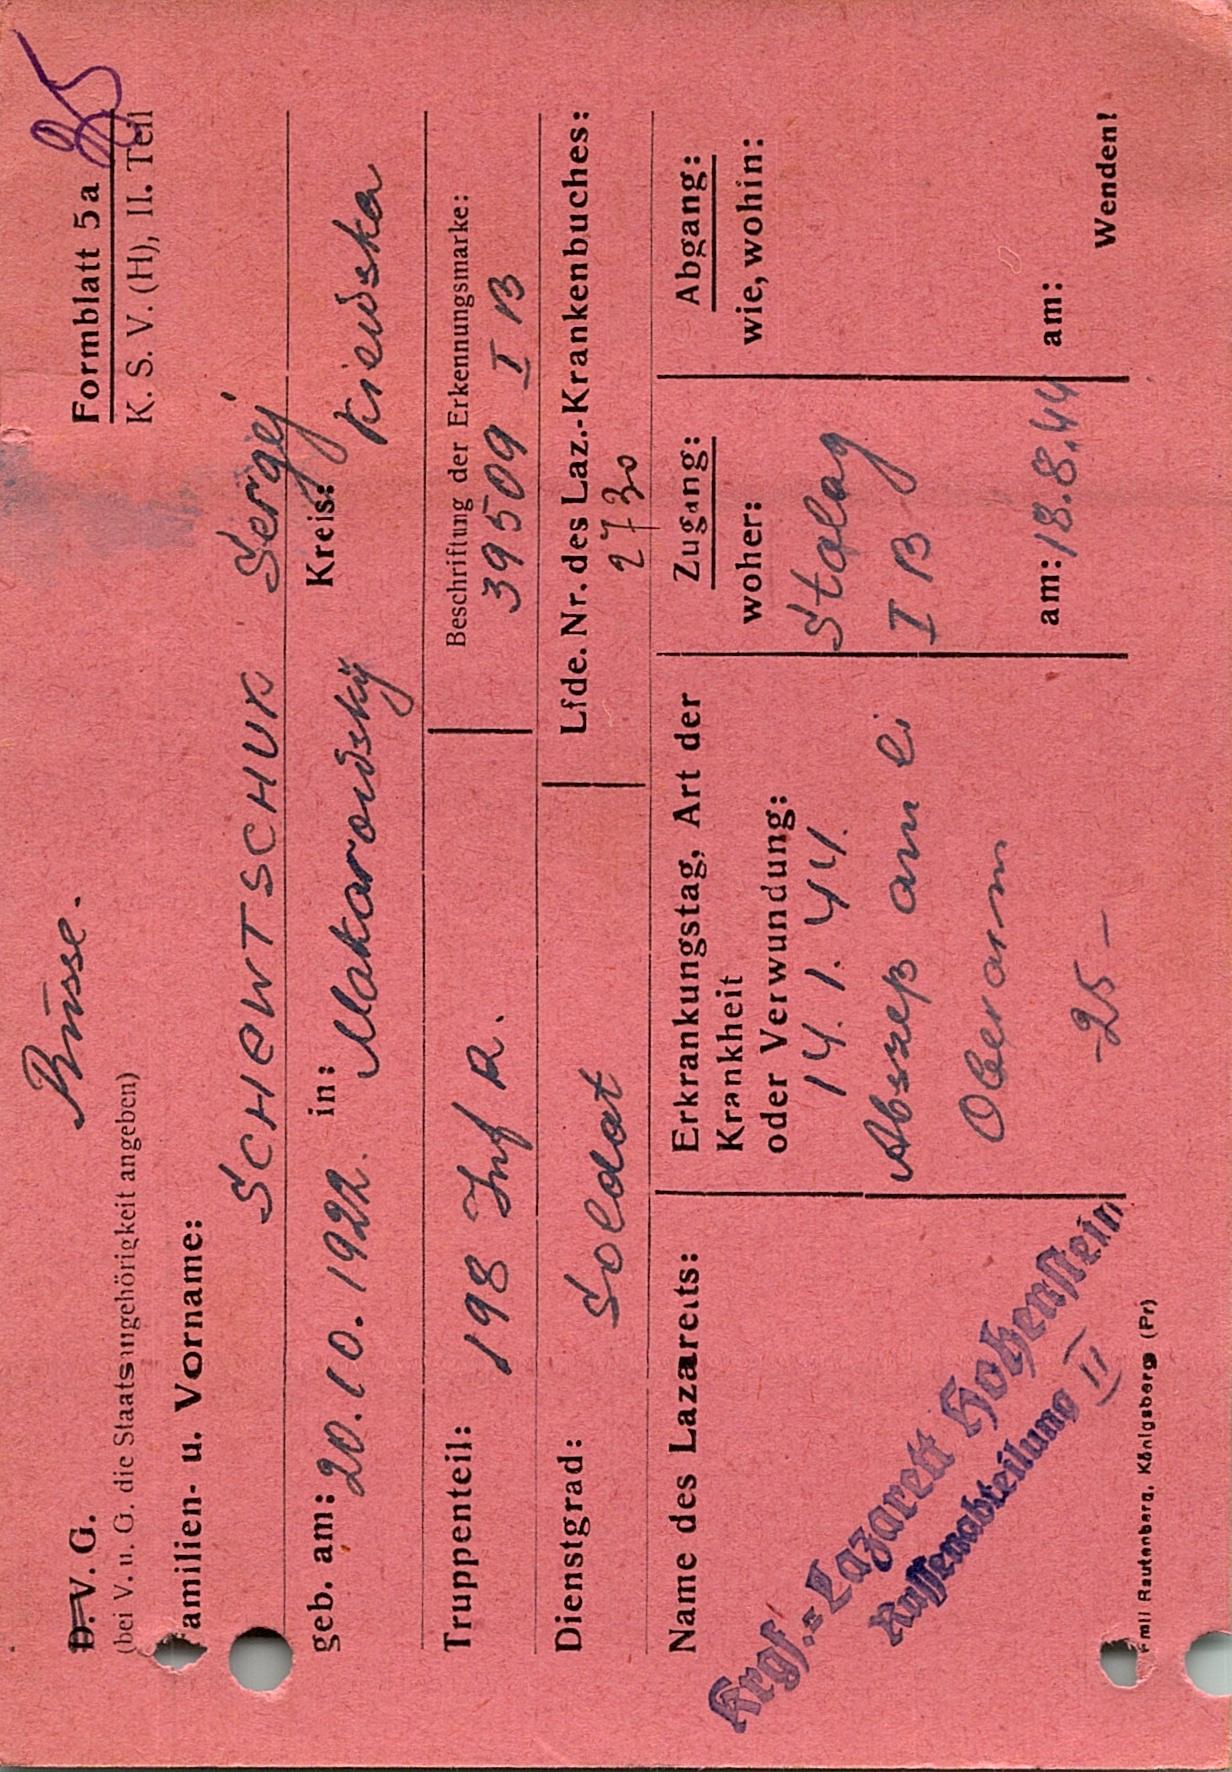 Russe.
25
Formblatt 5a
K. S. V. (H), II. Teil
D. V. G.
(bei V. u. G. die Staatsangehörigkeit angeben)
Familien- u. Vorname:
SCHEWTSCHUK Sergej
geb. am: 20.10.1922. in: Makarowskÿ Kreis: Kiewska
Truppenteil: 198 Inf R.
Beschriftung der Erkennungsmarke:
39509 I B
Dienstgrad: Soldat
Lfde. Nr. des Laz.-Krankenbuches:
2730
Name des Lazaretts:
Krgf.-Lazarett Hohenstein
Russenabteilung II
Erkrankungstag, Art der
Krankheit
oder Verwundung:
14.1.44.
Abszeß am li
Oberarm
-25-
Zugang:
woher:
Stalag
I B
am: 18.8.44
Abgang:
wie, wohin:
am:
Wenden!
Emil Rautenberg, Königsberg (Pr)